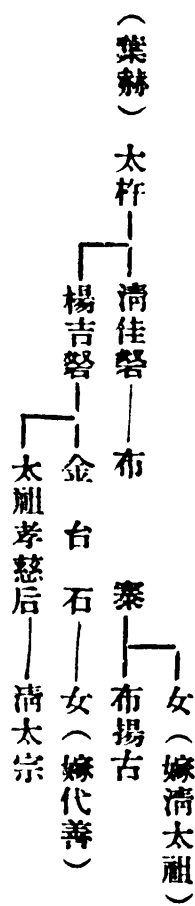 （葉赫）太杵
清佳砮
布寨
女（嫁清太祖）
布揚古
楊吉砮
金台石
女（嫁代善）
太祖孝慈后
清太宗